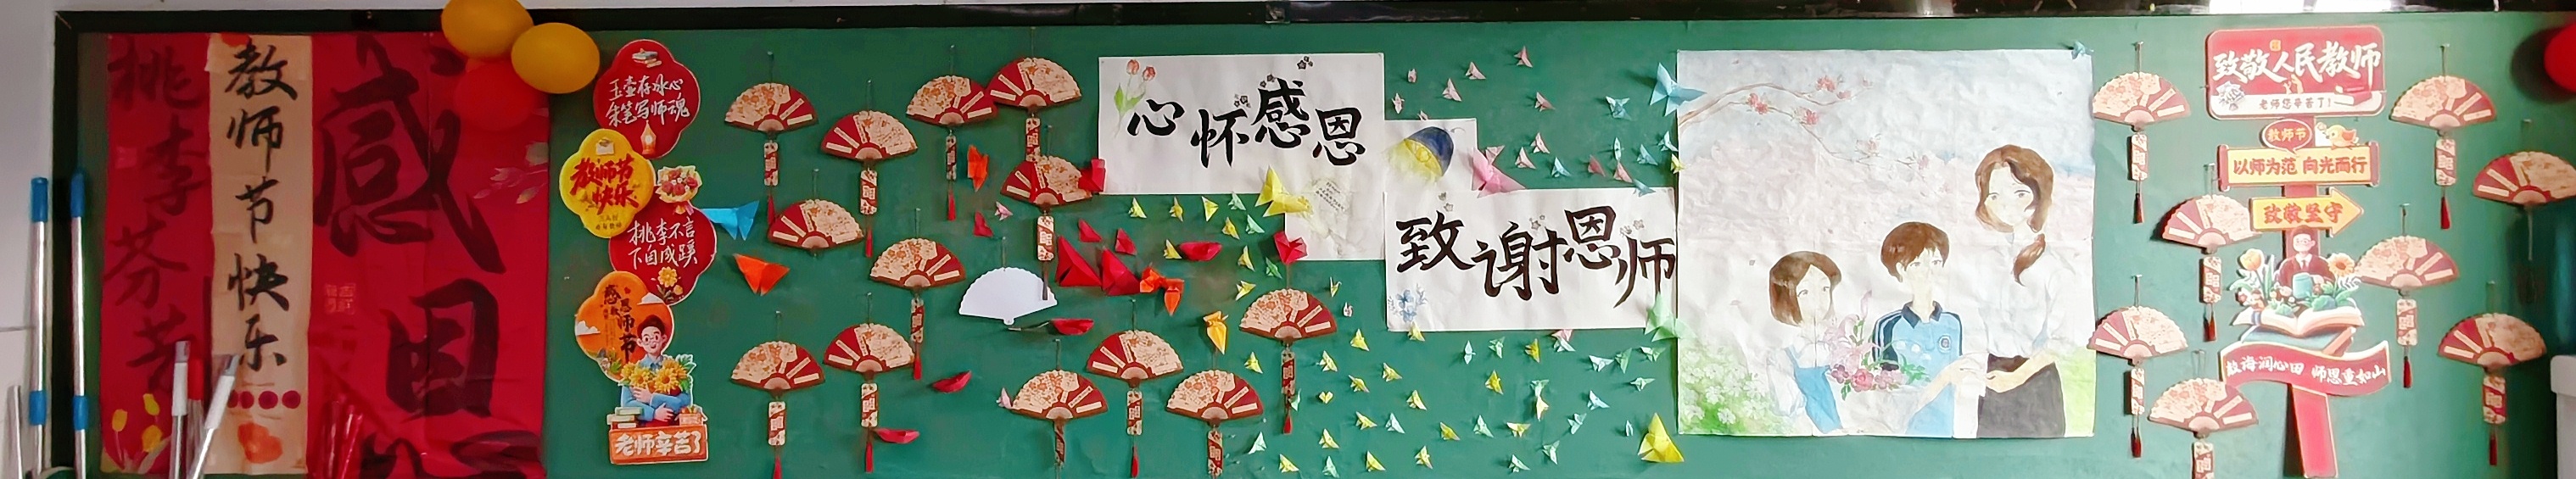 桃李芬芳
教师节快乐
感恩
玉壶存冰心
朱笔写师魂
教师节
快乐
桃李不言
下自成蹊
感恩
教师节
老师辛苦了
心怀感恩
致谢恩师
致敬人民教师
老师您辛苦了!
教师节
以师为范 向光而行
致敬坚守
教诲润心田 师恩重如山